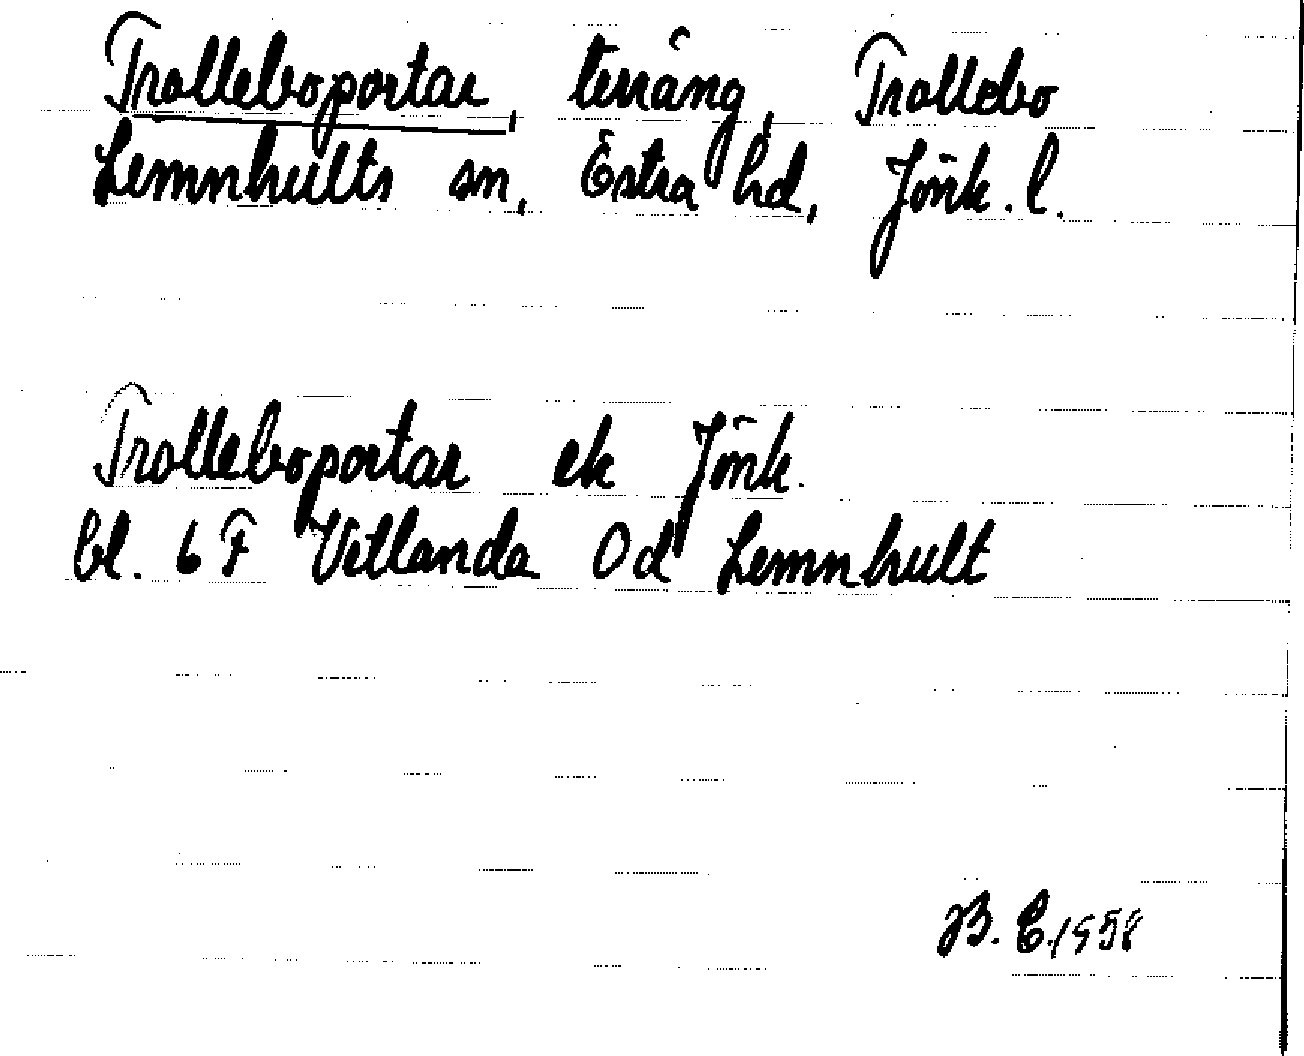 Tralleboportar, terräng, Trallebo
Lemnhults sn, Östra hd, Jönk. l.
Tralleboportar ek Jönk.
bl. 6 F Vetlanda Od Lemnhult
B. E. 1958